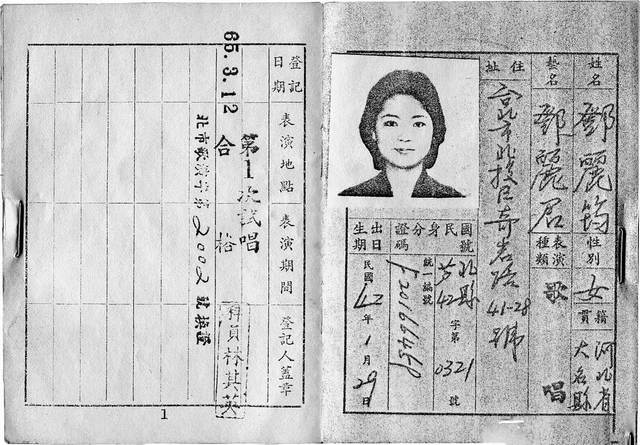 姓名 鄧麗筠
性別 女
籍貫 河北省大名縣
藝名 鄧麗君
表演種類 歌唱
住址 台北市北投區奇岩路41-28號
國民身分證號碼
北縣
字第0321號
統一編號
出生日期
民國42年1月29日
登記日期
表演地點
表演期間
登記人蓋章
65.3.12
第1次試唱
合格
科員林其英
2002
1